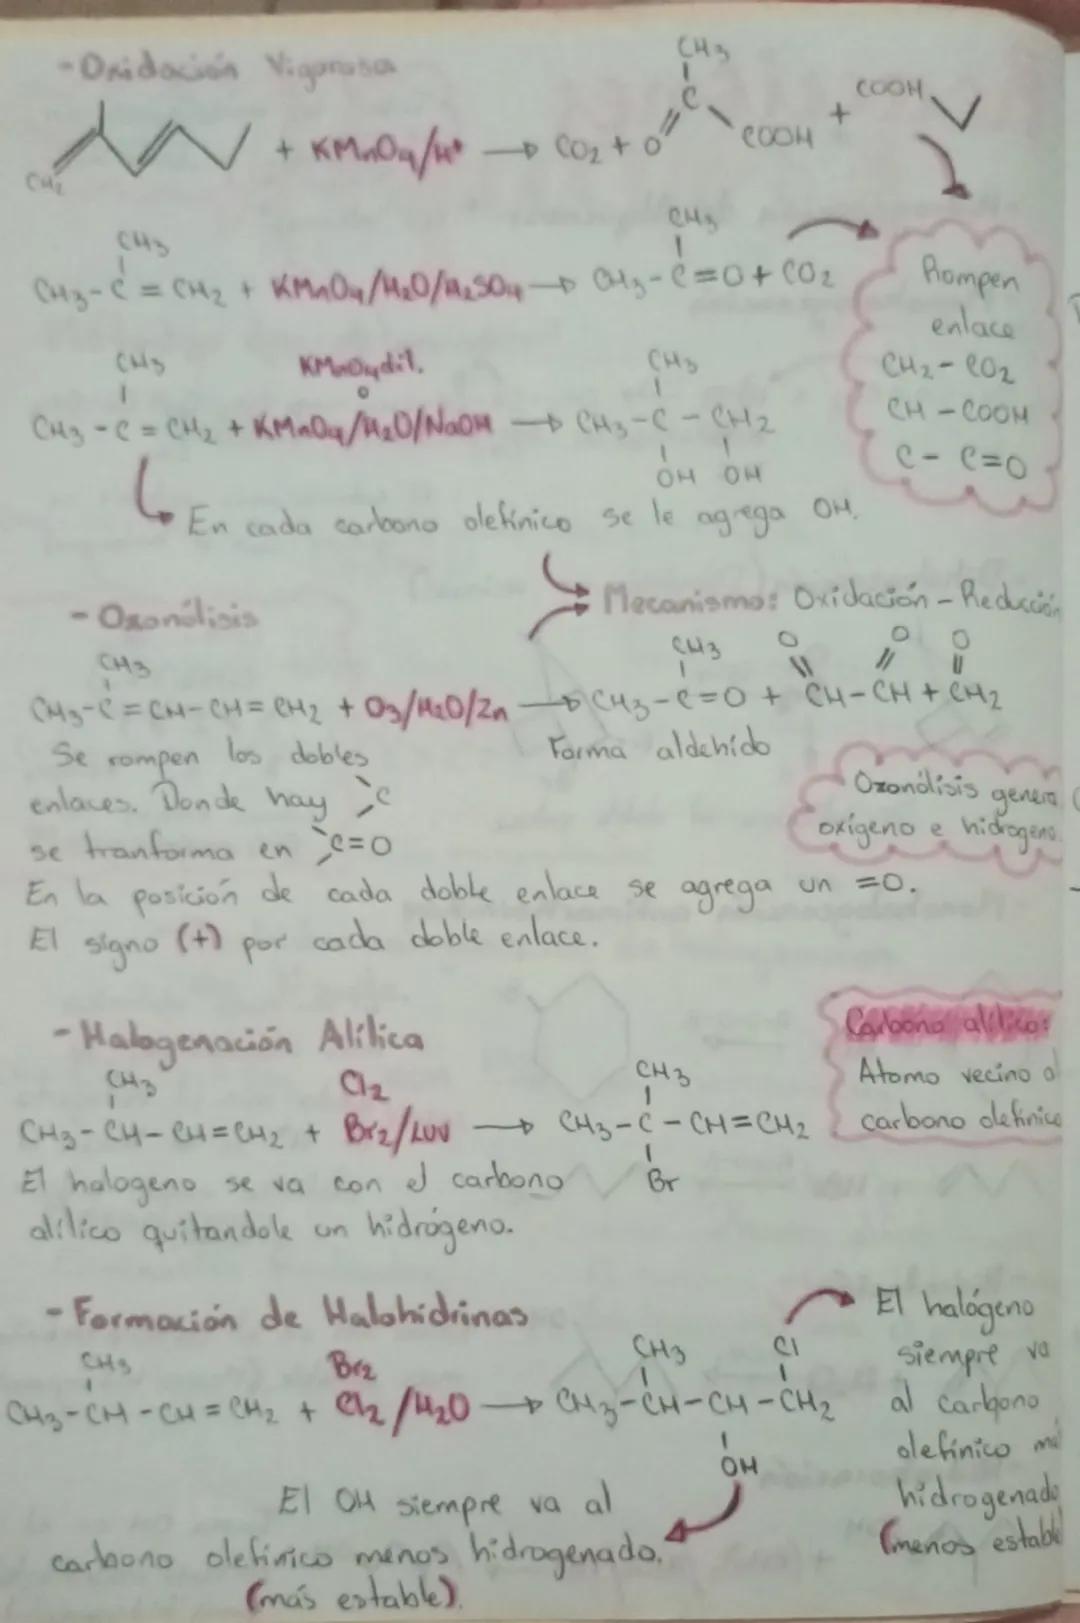 - Oxidación Vigorosa
CH2
+ KMnO4/H+ → CO2 + O=C(CH3)-COOH + COOH
CH3
CH3-C=CH2 + KMnO4/H2O/H2SO4 → CH3-C=O + CO2
CH3
Rompen
enlace
CH2 - CO2
CH - COOH
C - C=O
CH3
KMnO4 dil.
o
CH3
CH3-C=CH2 + KMnO4/H2O/NaOH → CH3-C-CH2
OH OH
En cada carbono olefinico se le agrega OH.
Mecanismo: Oxidación - Reducción
- Ozonólisis
CH3
CH3 O O O
CH3-C=CH-CH=CH2 + O3/H2O/Zn → CH3-C=O + CH-CH + CH2
Forma aldehído
Se rompen los dobles
enlaces. Donde hay C
se tranforma en C=O
Ozonólisis genera
oxígeno e hidrogeno.
En la posición de cada doble enlace se agrega un =O.
El signo (+) por cada doble enlace.
- Halogenación Alílica
Carbono alílico:
Atomo vecino al
carbono olefinico
CH3
Cl2
CH3
CH3-CH-CH=CH2 + Br2/LUV → CH3-C-CH=CH2
Br
El halogeno se va con el carbono
alílico quitandole un hidrógeno.
- Formación de Halohidrinas
CH3
Br2
CH3 Cl
CH3-CH-CH=CH2 + Cl2/H2O → CH3-CH-CH-CH2
OH
El halógeno
siempre va
al carbono
olefinico
hidrogenado
(menos estable
El OH siempre va al
carbono olefinico menos hidrogenado.
(más estable).